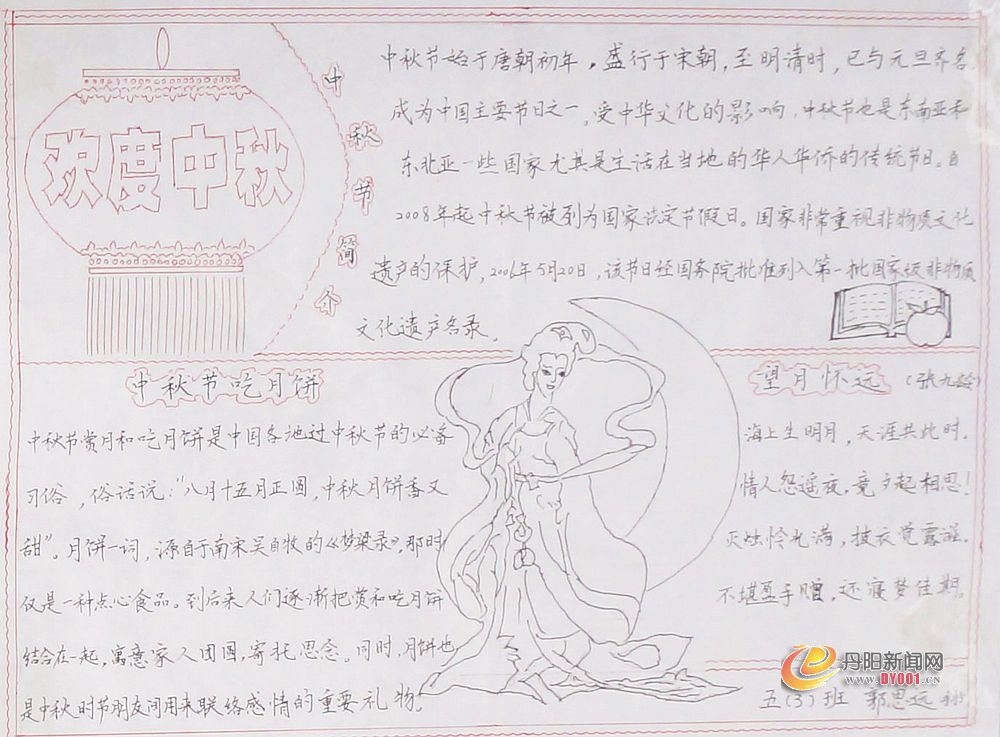 欢度中秋
中秋节简介
中秋节始于唐朝初年，盛行于宋朝，至明请时，已与元旦齐名
成为中国主要节日之一。受中华文化的影响，中秋节也是东南亚和
东北亚一些国家尤其是生活在当地的华人华侨的传统节日。自
2008年起中秋节被列为国家法定节假日。国家非常重视非物质文化
遗产的保护，2006年5月20日，该节日经国务院批准列入第一批国家级非物质
文化遗产名录。
中秋节吃月饼
中秋节赏月和吃月饼是中国各地过中秋节的必备
习俗，俗话说："八月十五月正圆，中秋月饼香又
甜"。月饼一词，源自于南宋吴自牧的《梦梁录》，那时
仅是一种点心食品。到后来人们逐渐把赏和吃月饼
结合在一起，寓意家人团圆，寄托思念。同时，月饼也
是中秋时节朋友间用来联络感情的重要礼物。
望月怀远（张九龄）
海上生明月，天涯共此时.
情人怨遥夜，竟夕起相思！
灭烛怜光满，披衣觉露滋.
不堪盈手赠，还寝梦佳期。
五（3）班 郭思远
丹阳新闻网
WWW.DY001.CN